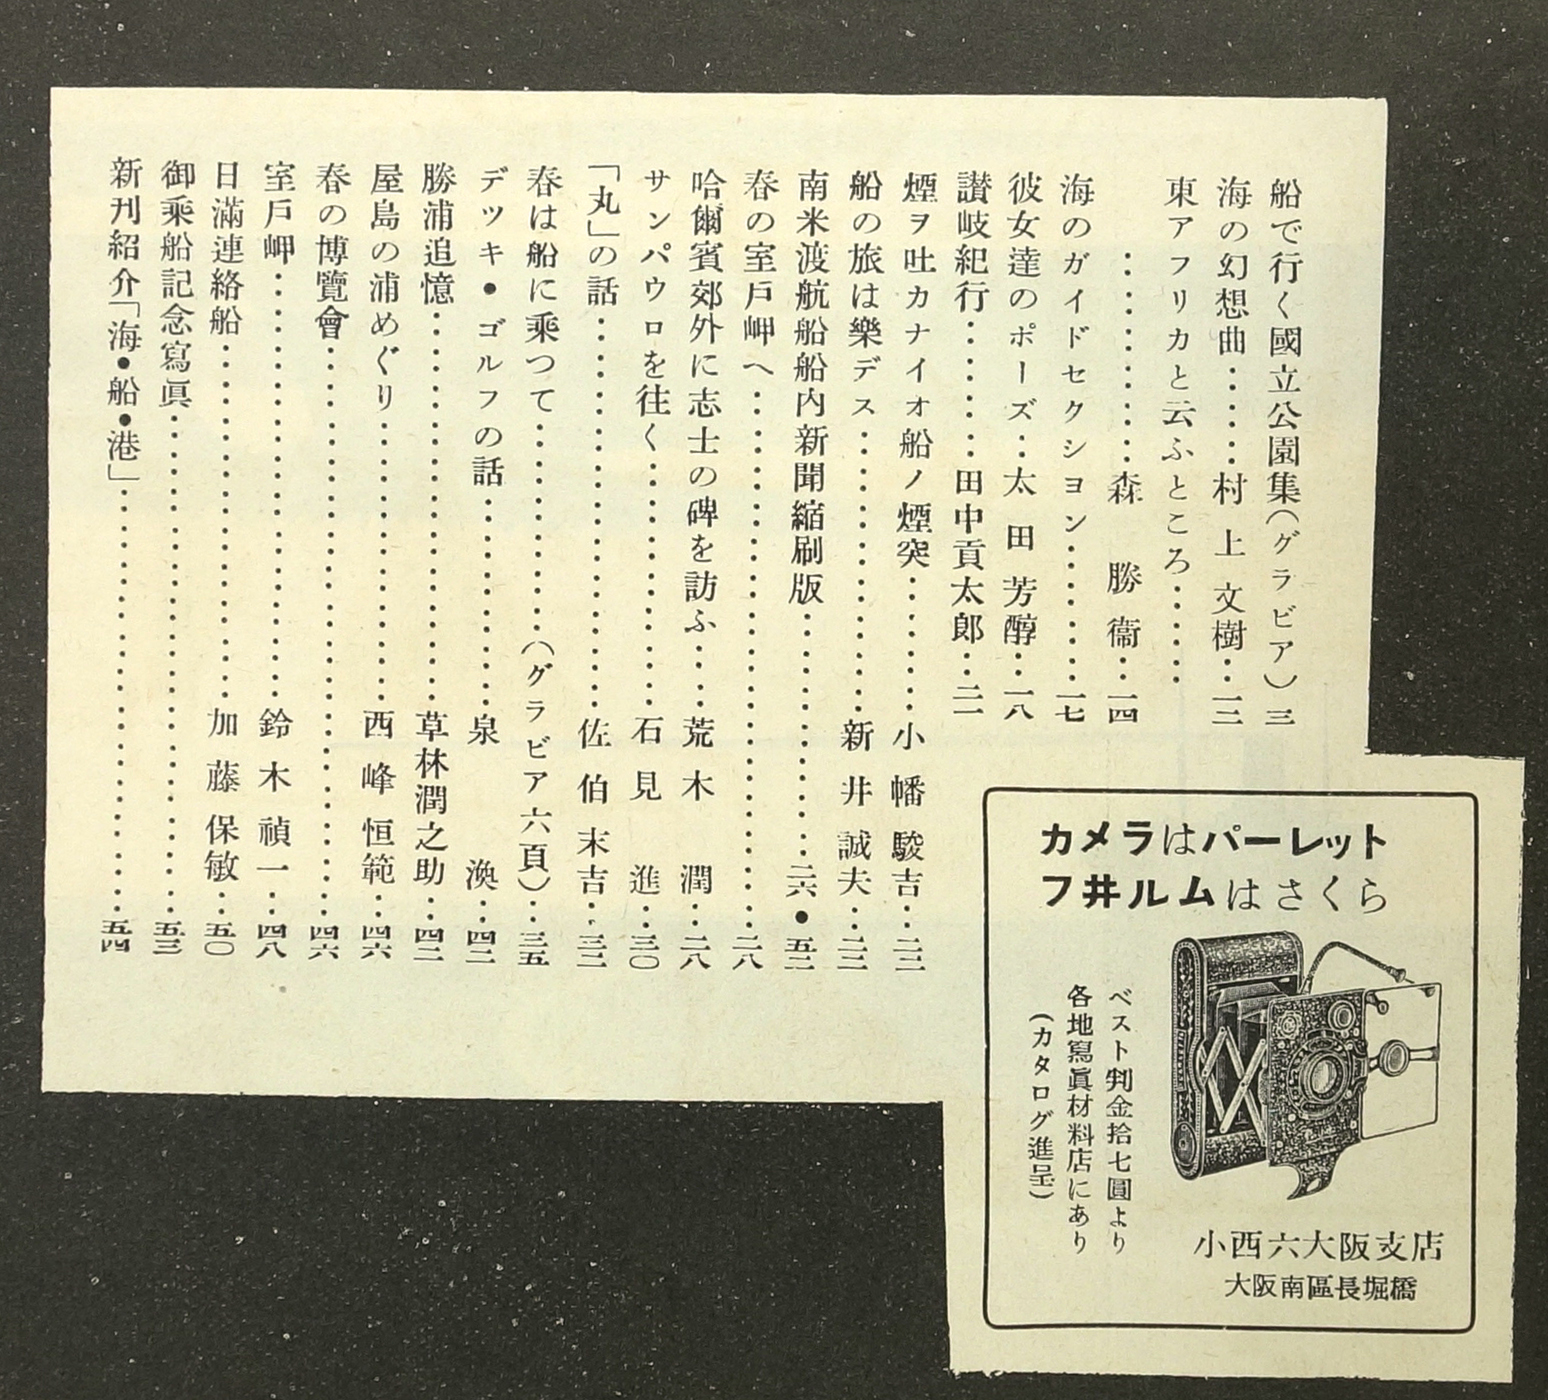 船で行く國立公園集(グラビア)三
海の幻想曲‥‥‥村上文樹‥一二
東アフリカと云ふところ‥‥‥
‥‥‥‥‥‥森勝衞‥一四
海のガイドセクシヨン‥‥‥‥一七
彼女達のポーズ‥太田芳醇‥一八
讃岐紀行‥‥‥‥田中貢太郎‥二一
煙ヲ吐カナイオ船ノ煙突‥‥‥‥小幡駿吉‥二二
船の旅は樂デス‥‥‥‥‥‥‥‥新井誠夫‥二二
南米渡航船船内新聞縮刷版‥‥‥‥‥‥‥二六●五二
春の室戸岬へ‥‥‥‥‥‥‥‥‥‥‥‥‥‥‥二八
哈爾賓郊外に志士の碑を訪ふ‥‥荒木潤‥二八
サンパウロを往く‥‥‥‥‥‥‥石見進‥三〇
「丸」の話‥‥‥‥‥‥‥‥‥‥‥佐伯末吉‥三二
春は船に乘つて‥‥‥‥‥‥(グラビア六頁)‥三五
デツキ●ゴルフの話‥‥‥‥‥‥泉渙‥四二
勝浦追憶‥‥‥‥‥‥‥‥‥‥‥草林潤之助‥四二
屋島の浦めぐり‥‥‥‥‥‥‥‥西峰恒範‥四六
春の博覽會‥‥‥‥‥‥‥‥‥‥‥‥‥‥‥‥四六
室戸岬‥‥‥‥‥‥‥‥‥‥‥‥鈴木禎一‥四八
日滿連絡船‥‥‥‥‥‥‥‥‥‥加藤保敏‥五〇
御乘船記念寫眞‥‥‥‥‥‥‥‥‥‥‥‥‥‥五三
新刊紹介「海●船●港」‥‥‥‥‥‥‥‥‥‥‥五四
カメラはパーレット
フ井ルムはさくら
ベスト判金拾七圓より
各地寫眞材料店にあり
(カタログ進呈)
小西六大阪支店
大阪南區長堀橋